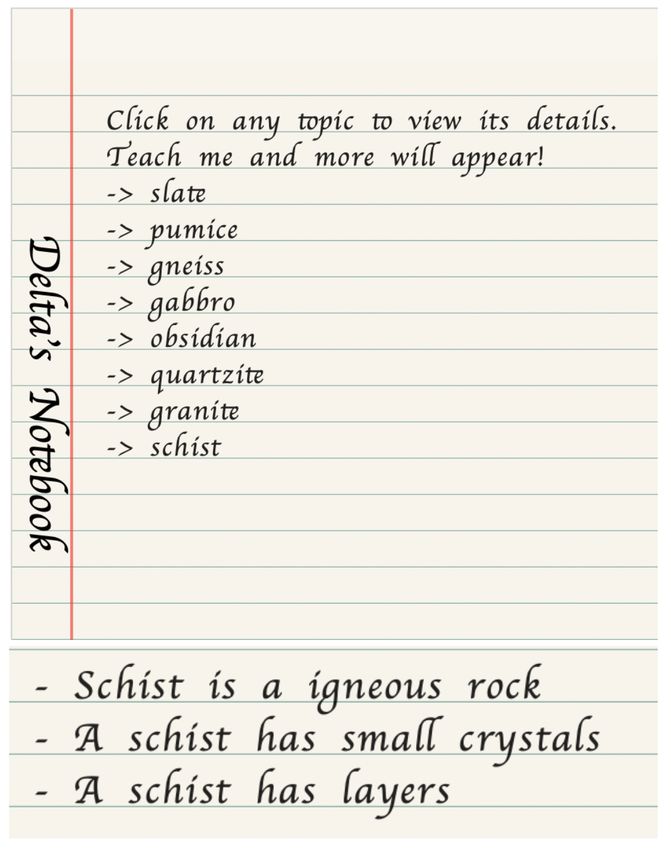 Delta's Notebook
Click on any topic to view its details.
Teach me and more will appear!
-> slate
-> pumice
-> gneiss
-> gabbro
-> obsidian
-> quartzite
-> granite
-> schist
- Schist is a igneous rock
- A schist has small crystals
- A schist has layers